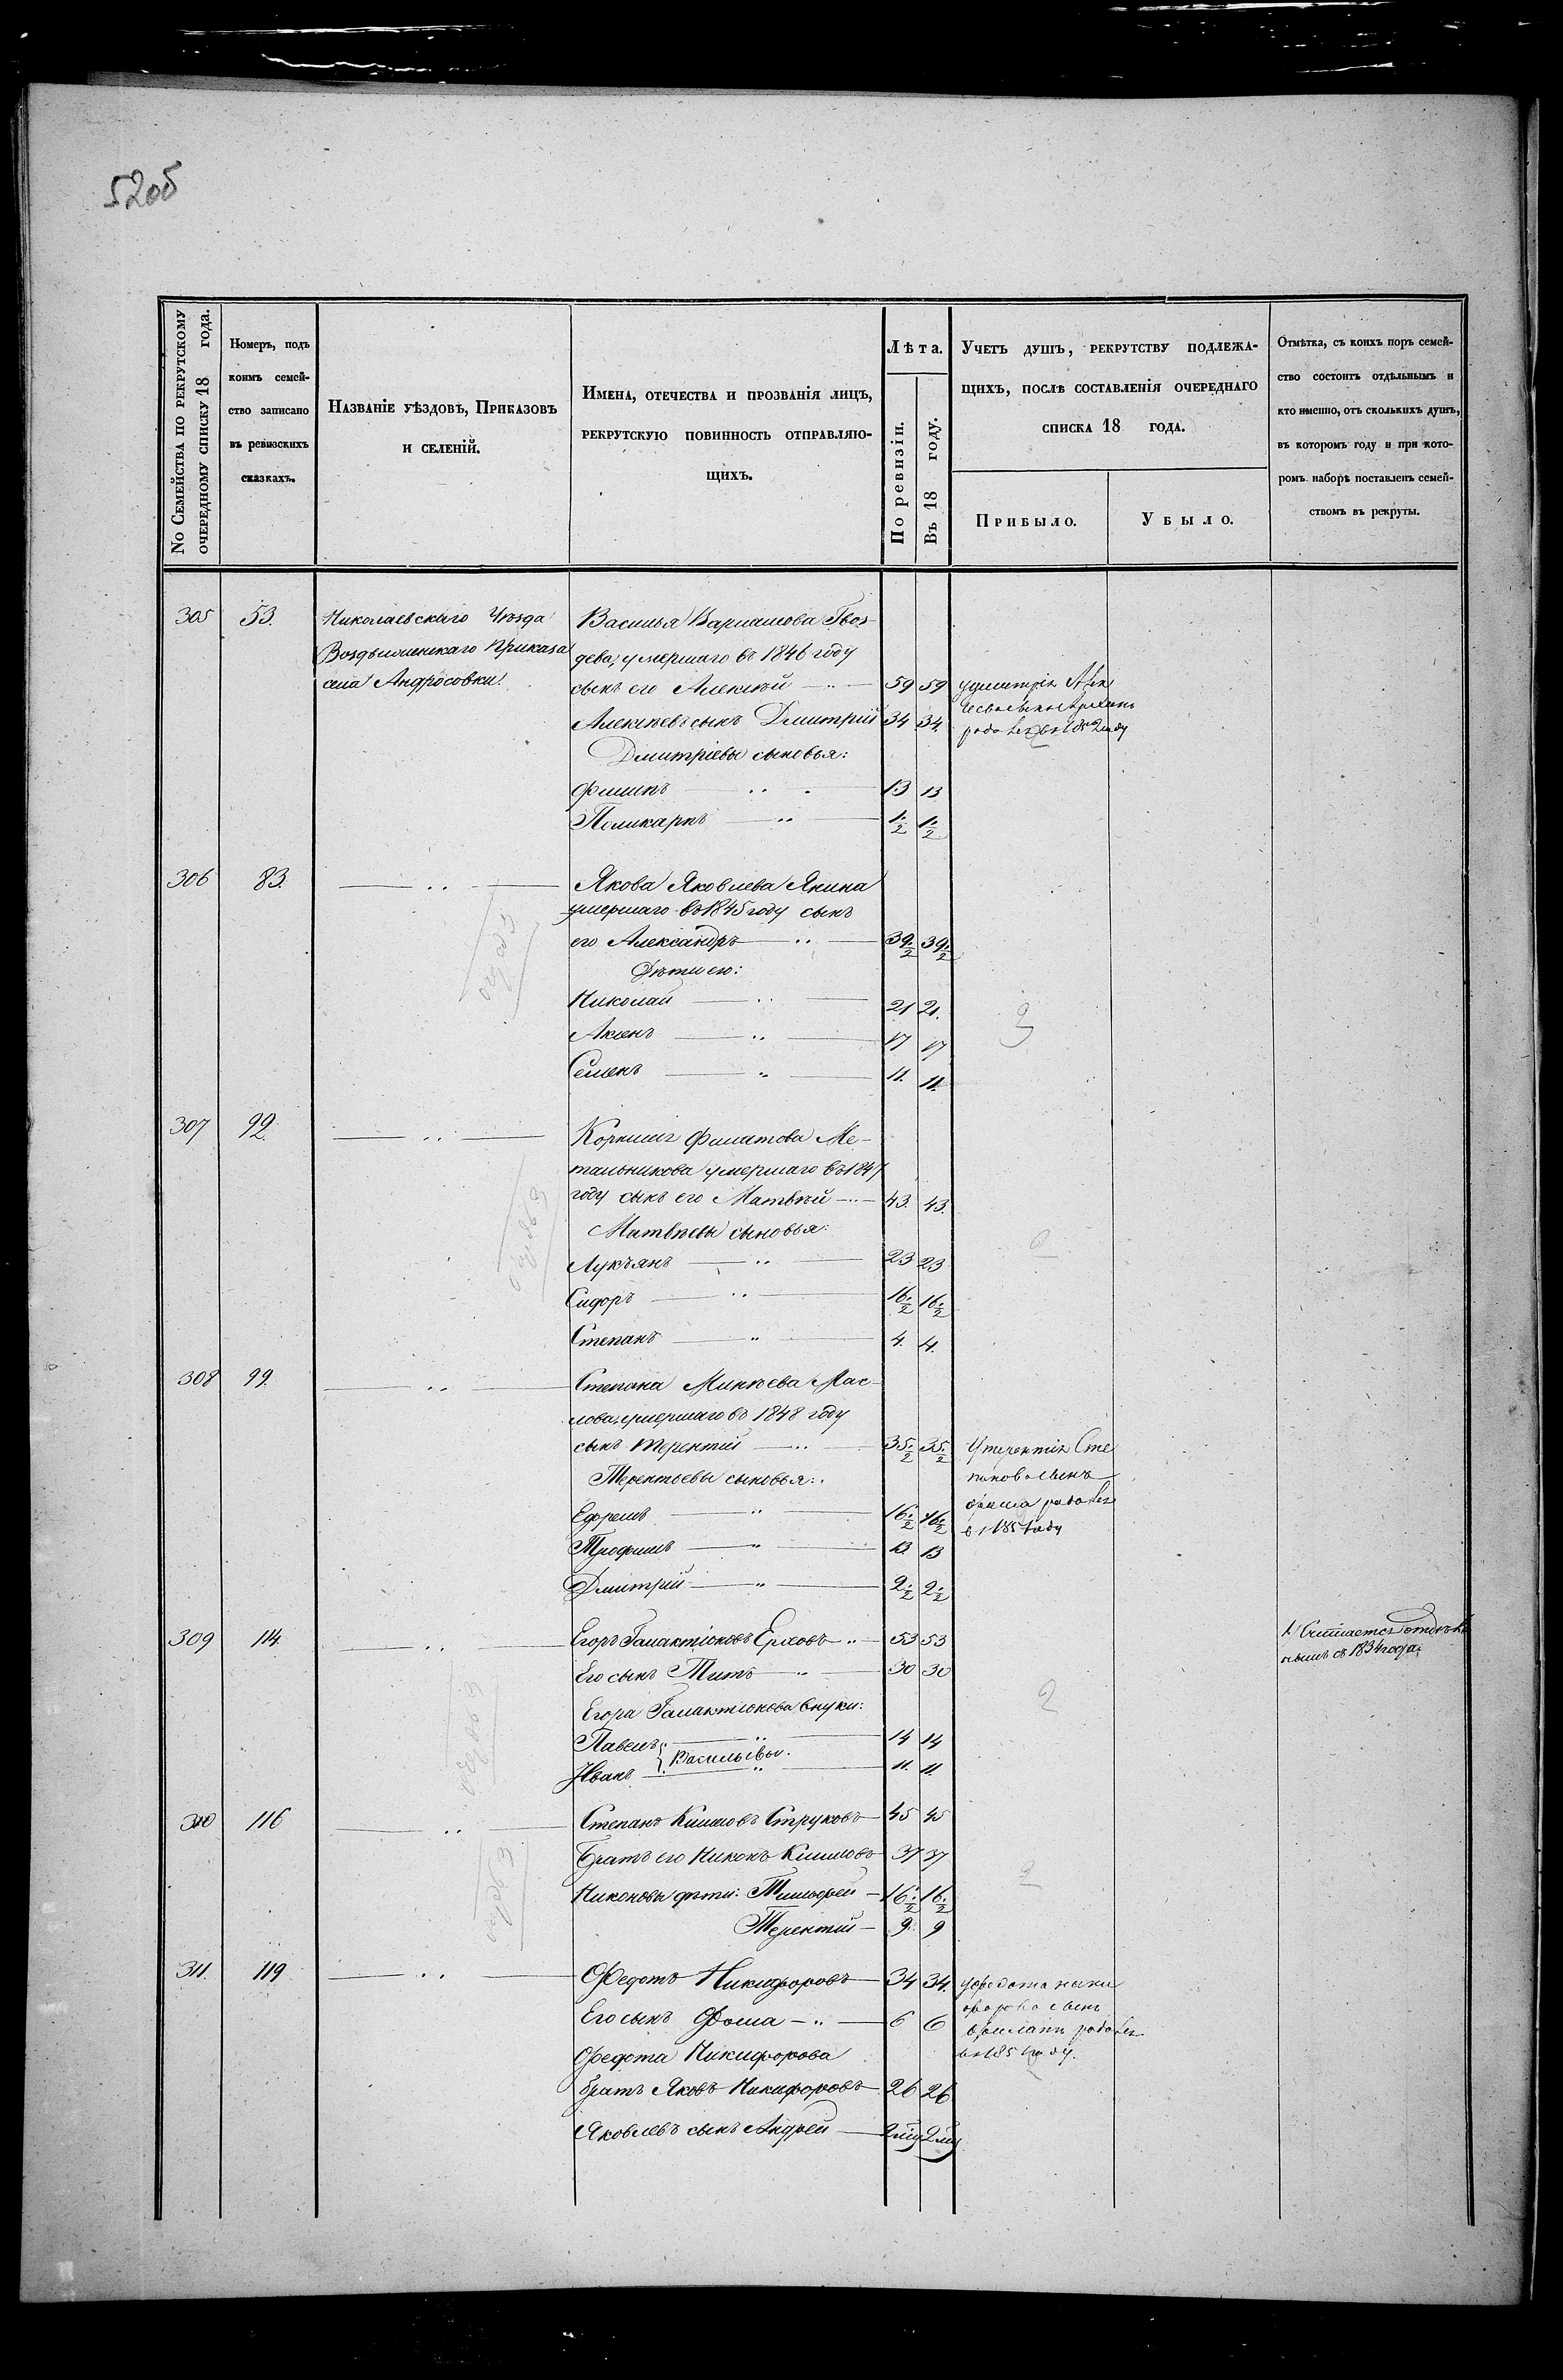 52об
No Семейства по рекрутскому очередному списку 18 года.
Номеръ, подъ коимъ семейство записано въ ревизскихъ сказкахъ.
Названіе уѣздовъ, Приказовъ и селеній.
Имена, отечества и прозванія лицъ, рекрутскую повинность отправляющихъ.
Лѣта.
По ревизіи.
Въ 18 году.
Учетъ душъ, рекрутству подлежащихъ, послѣ составленія очереднаго списка 18 года.
Прибыло.
Убыло.
Отмѣтка, съ коихъ поръ семейство состоитъ отдѣльнымъ и кто именно, отъ сколькихъ душъ, въ которомъ году и при которомъ наборѣ поставленъ семействомъ въ рекруты.
305 53. Николаевскаго Уѣзда Василья Варламова Гвоз-
Воздвиженскаго Приказа дева, умершаго въ 1846 году
села Андросовки. сынъ его Алексѣй 59 59
Алексѣевъ сынъ Дмитрій 34 34.
удмитрія Алек
родовся в 1852 году
Дмитріевы сыновья:
Филипъ 13 13
Поликарпъ 1 1/2 1 1/2
306 83. Якова Яковлева Янина
умершаго въ 1845 году сынъ
его Александръ 39 1/2 39 1/2
Дѣти его:
Николай 21 21.
Аксенъ 17 17
Семенъ 11. 11.
307 92. Корнила Филатова Ме-
тальникова умершаго въ 1847
году сынъ его Матвѣй 43. 43.
Матвѣевы сыновья:
Лукьянъ 23 23
Сидоръ 16 1/2 16 1/2
Степанъ 4. 4.
308 99. Степана Минѣева Мас-
лова, умершаго въ 1848 году
сынъ Терентій 35 1/2 35 1/2 Утерентія Сте
Терентьевы сыновья: панова сынъ
Ефремъ 16 1/2 16 1/2
родовся в 1851 году
Трофимъ 13. 13
Дмитрій 2 1/2 2 1/2
309 114. Егоръ Галактіоновъ Ерховъ 53 53 1. Считается отдѣль
Его сынъ Титъ 30 30 нымъ съ 1834 года;
Егора Галактіонова внуки: 2
Павелъ 14 14
Васильевы.
Иванъ 11. 11.
310 116 Степанъ Климовъ Струковъ 45 45
Братъ его Никонъ Климовъ 37 37
Никоновы дѣти: Тимофей 16 1/2 16 1/2
Терентій 9. 9
311. 119 Федотъ Никифоровъ 34 34. уфедота ники
Его сынъ Фома 6 6 форова сынъ
Федота Никифорова
филатъ родовся
в 1851 году.
братъ Яковъ Никифоровъ 26 26
Яковлевъ сынъ Андрей